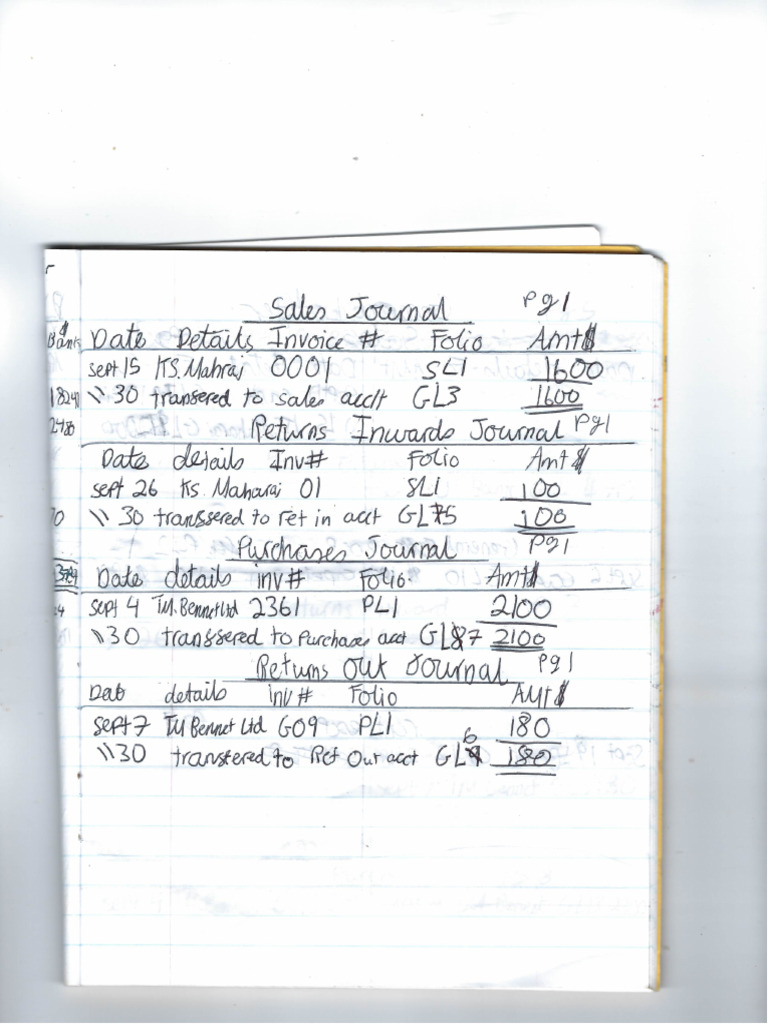 Sales Journal pg1
Bank $ Date Details Invoice # Folio Amt$
sept 15 KS. Mahraj 0001 SL1 1600
1824 \\ 30 transered to sales acct GL3 1600
2480 Returns Inwards Journal pg1
Date details Inv# Folio Amt$
sept 26 KS. Maharaj 01 SL1 100
\\ 30 transsered to ret in acct GL5 100
Purchases Journal pg1
Date details inv# Folio Amt$
sept 4 T.M. Bennet ltd 2361 PL1 2100
\\ 30 transsered to Purchases acct GL7 2100
Returns Out Journal pg1
Date details inv# Folio Amt$
sept 7 TM Bennet Ltd G09 PL1 180
\\ 30 transtered to Ret Out acct GL6 180